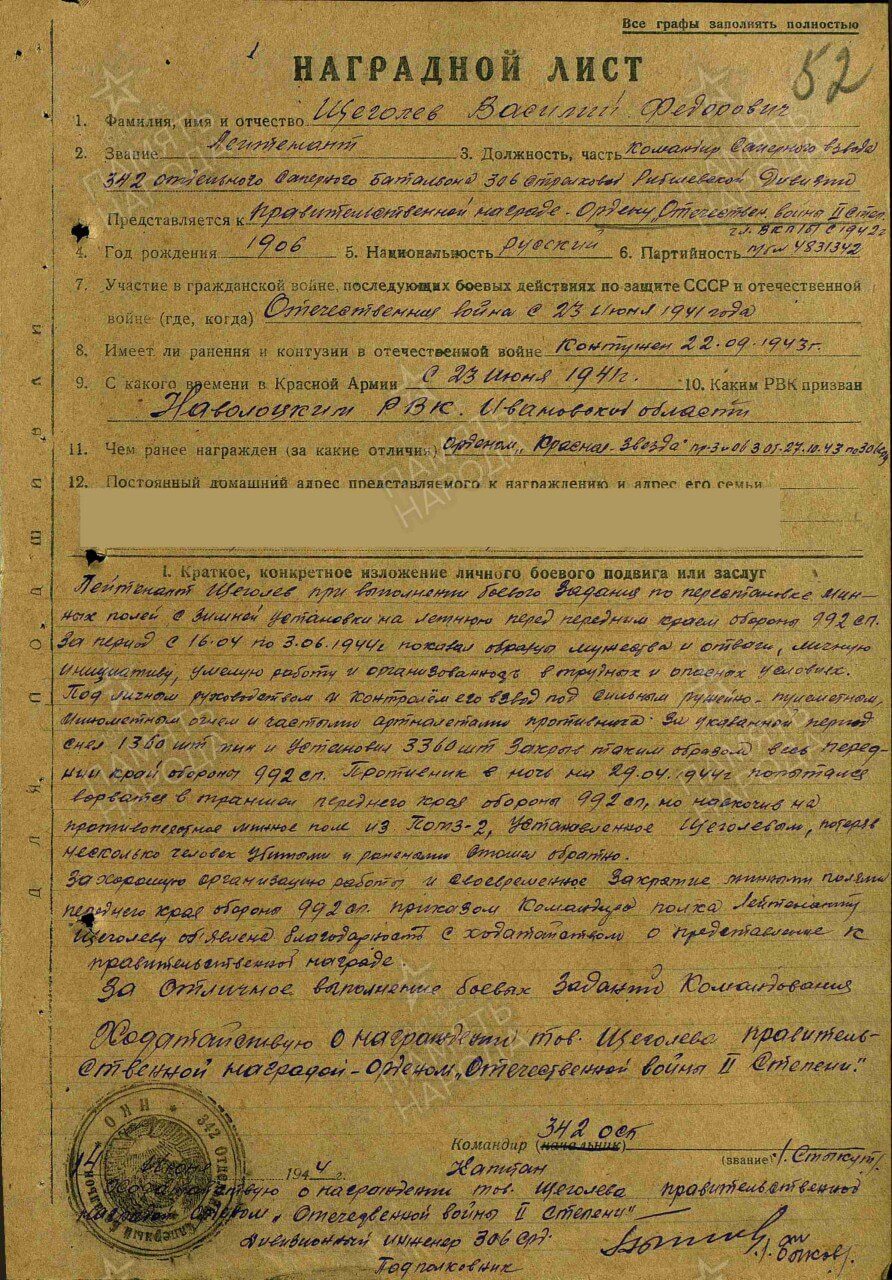 Все графы заполнять полностью
1
52
НАГРАДНОЙ ЛИСТ
1. Фамилия, имя и отчество Щеголев Василий Федорович
2. Звание Лейтенант 3. Должность, часть Командир Саперного взвода
342 отдельного Саперного батальона 306 Стрелковой Дивизии
Представляется к правительственной награде - Ордену "Отечествен. войны II степ.
ВКП(б) с 1942 г
4. Год рождения 1906 5. Национальность русский 6. Партийность 4831342
7. Участие в гражданской войне, последующих боевых действиях по защите СССР и отечественной
войне (где, когда) Отечественная война с 23 июня 1941 года
8. Имеет ли ранения и контузии в отечественной войне Контужен 22.09.1943г.
9. С какого времени в Красной Армии с 23 июня 1941г. 10. Каким РВК призван
Наволоцким РВК. Ивановской области
11. Чем ранее награжден (за какие отличия) Орденом "Красная Звезда" от 27.10.43
12. Постоянный домашний адрес представляемого к награждению и адрес его семьи
ДЛЯ ПОДШИВКИ
I. Краткое, конкретное изложение личного боевого подвига или заслуг
Лейтенант Щеголев при выполнении боевого задания по перестановке мин-
ных полей с зимней установки на летнюю перед передним краем обороны 992 сп.
За период с 16.04 по 3.06.1944г показал образцы мужества и отваги, личную
инициативу, умелую работу и организованность в трудных и опасных условиях.
Под личным руководством и контролем его взвод под сильным ружейно-пулеметным,
минометным огнем и частыми артналетами противника за указанный период
снял 1360 шт мин и установил 3360 шт закрыв таким образом весь перед-
ний край обороны 992 сп. Противник в ночь на 29.04.1944г попытался
ворватся в траншеи переднего края обороны 992 сп, но наскочив на
противопехотное минное поле из ПОМЗ-2, установленное Щеголевым, потеряв
несколько человек убитыми и ранеными отошел обратно.
За хорошую организацию работы и своевременное закрытие минными полями
переднего края обороны 992 сп. приказом Командира полка Лейтенанту
Щеголеву объявлена благодарность с ходатайством о представление к
правительственной награде.
За отличное выполнение боевых заданий Командования
Ходатайствую о награждении тов. Щеголева правитель-
ственной наградой - орденом "Отечественной войны II Степени".
342 осб
Командир (начальник)
14 июня 1944 г. Капитан (звание) /Стыкут/.
Ходатайствую о награждении тов. Щеголева правительственной
орденом "Отечедвенной войны II Степени"
Дивизионный инженер 306 СКД.
Подполковник /Быков/
НКО * 342 Отдельный Саперный
ПАМЯТЬ НАРОДА